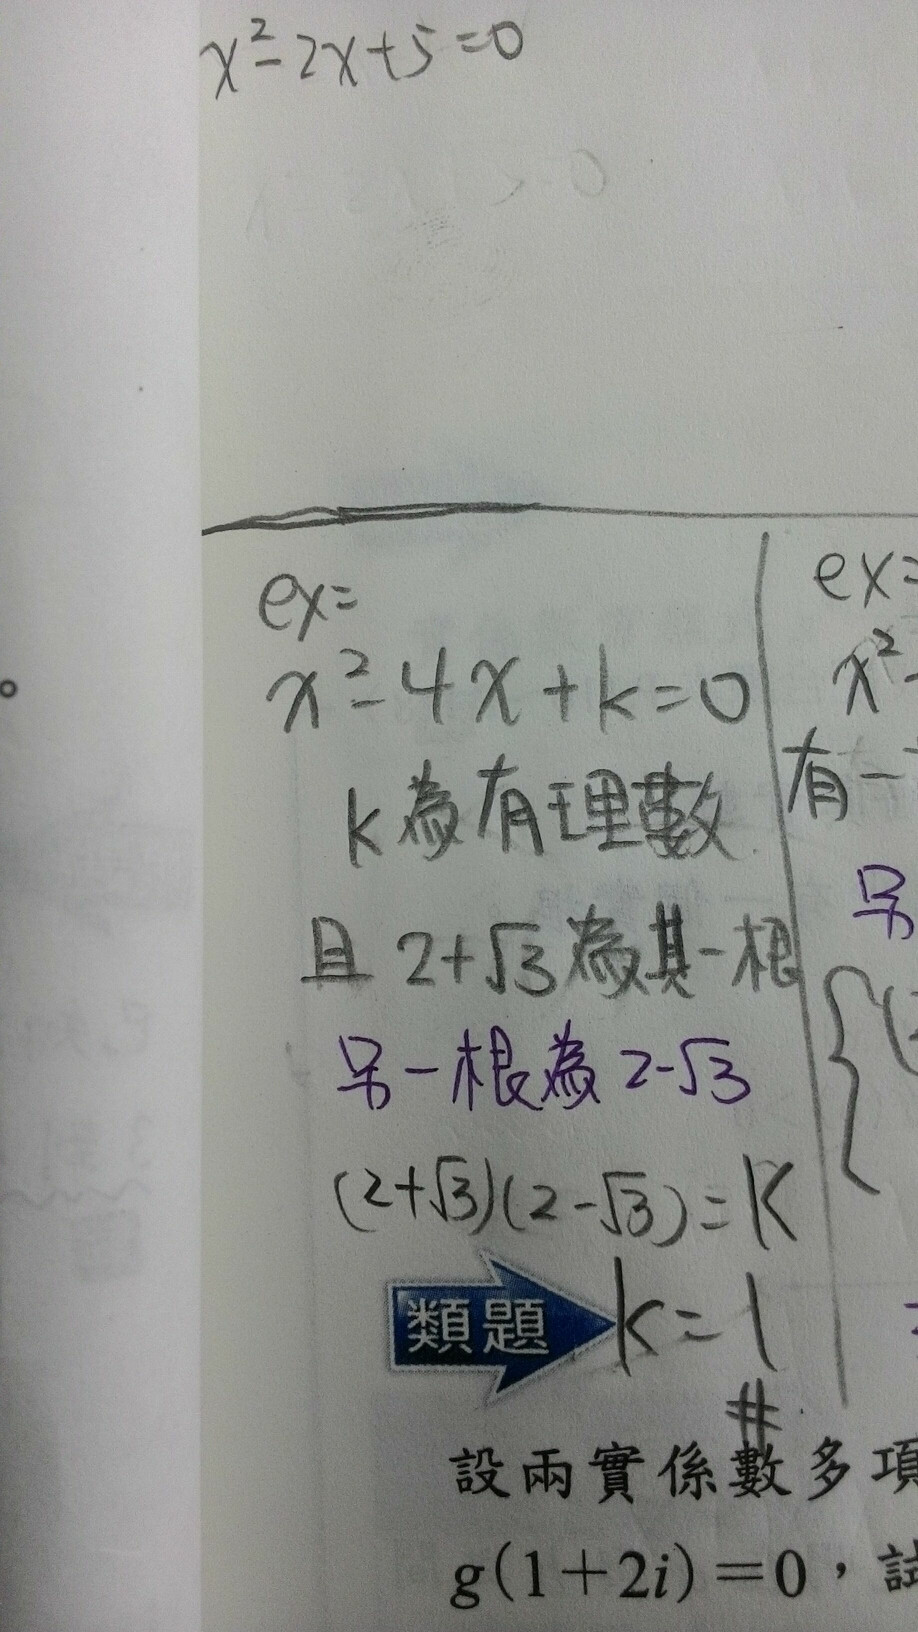 x²-2x+5=0
ex=
x²-4x+k=0
k為有理數
且 2+√3為其一根
另一根為 2-√3
(2+√3)(2-√3)=K
類題
k=1
#
設兩實係數多項
g(1+2i)=0，試
ex=
x²-
有一
另